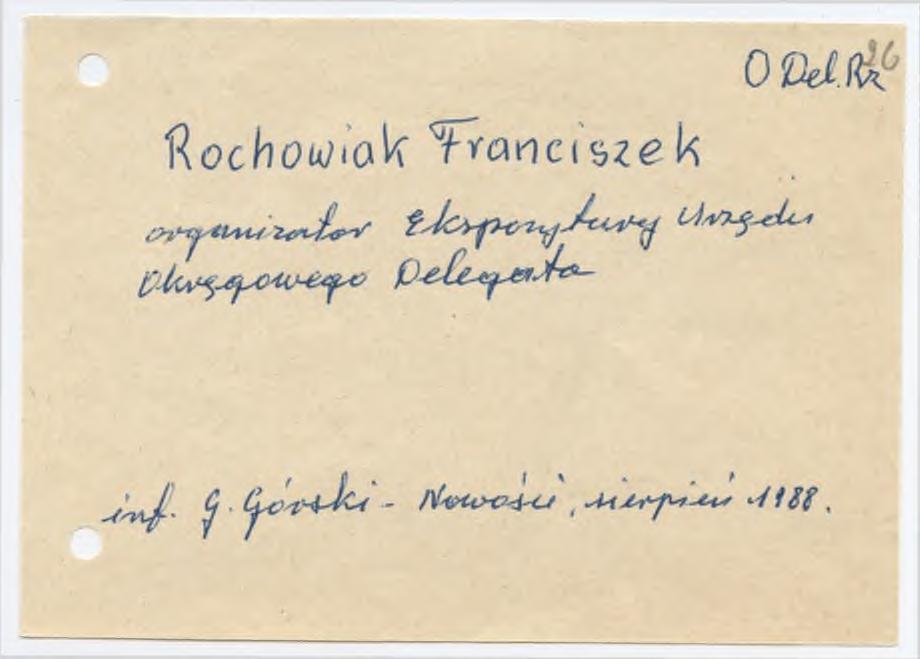 26
O Del. Rz
Rochowiak Franciszek
organizator Ekspozytury Urzędu
Okręgowego Delegata
inf. G. Górski - Nowości, sierpień 1988.